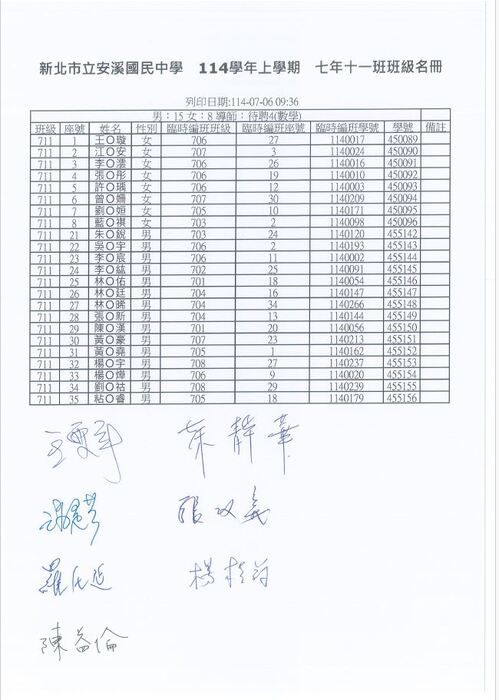 新北市立安溪國民中學 114學年上學期 七年十一班班級名冊
列印日期:114-07-06 09:36
男：15 女：8 導師：待聘4(數學)
班級 座號 姓名 性別 臨時編班班級 臨時編班座號 臨時編班學號 學號 備註
711 1 王O璇 女 706 27 1140017 450089
711 2 江O安 女 707 3 1140024 450090
711 3 李O澐 女 706 26 1140016 450091
711 4 張O彤 女 706 19 1140010 450092
711 5 許O瑀 女 706 12 1140003 450093
711 6 曾O姍 女 707 30 1140209 450094
711 7 劉O姮 女 705 10 1140171 450095
711 8 藍O祺 女 703 2 1140098 450096
711 21 朱O銳 男 703 24 1140120 455142
711 22 吳O宇 男 706 2 1140193 455143
711 23 李O宸 男 706 11 1140002 455144
711 24 李O紘 男 702 25 1140091 455145
711 25 林O佑 男 701 18 1140054 455146
711 26 林O廷 男 704 16 1140147 455147
711 27 林O晞 男 704 34 1140266 455148
711 28 張O新 男 704 13 1140144 455149
711 29 陳O漢 男 701 20 1140056 455150
711 30 黃O豪 男 707 23 1140213 455151
711 31 黃O堯 男 705 1 1140162 455152
711 32 楊O宇 男 708 27 1140237 455153
711 33 楊O燁 男 706 9 1140020 455154
711 34 劉O祜 男 708 29 1140239 455155
711 35 粘O睿 男 705 18 1140179 455156
陳益倫